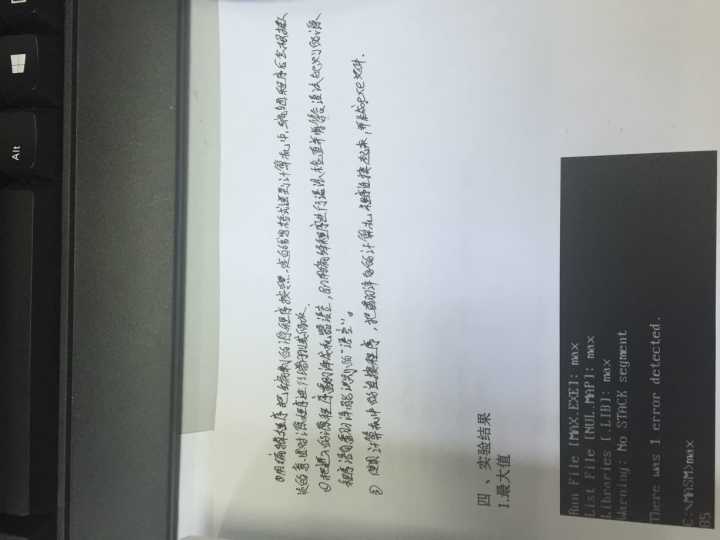 Alt
①用编辑程序把编制的源程序按照一定的书写格式送到计算机中,编辑程序会根据人
们的意图对源程序进行增删或修改。
②把送入的源程序翻译成机器语言,即用编译程序进行语法检查并将符合语法规则的源
程序语句翻译成能识别的"语言"。
③ 使用计算机中的连接程序,把翻译好的计算机程序连接起来,形成exe文件.
四 、实验结果
1.最大值
Run File [MAX.EXE]: max
List File [NUL.MAP]: max
Libraries [.LIB]: max
Warning: No STACK segment
There was 1 error detected.
C:\MASM>max
85